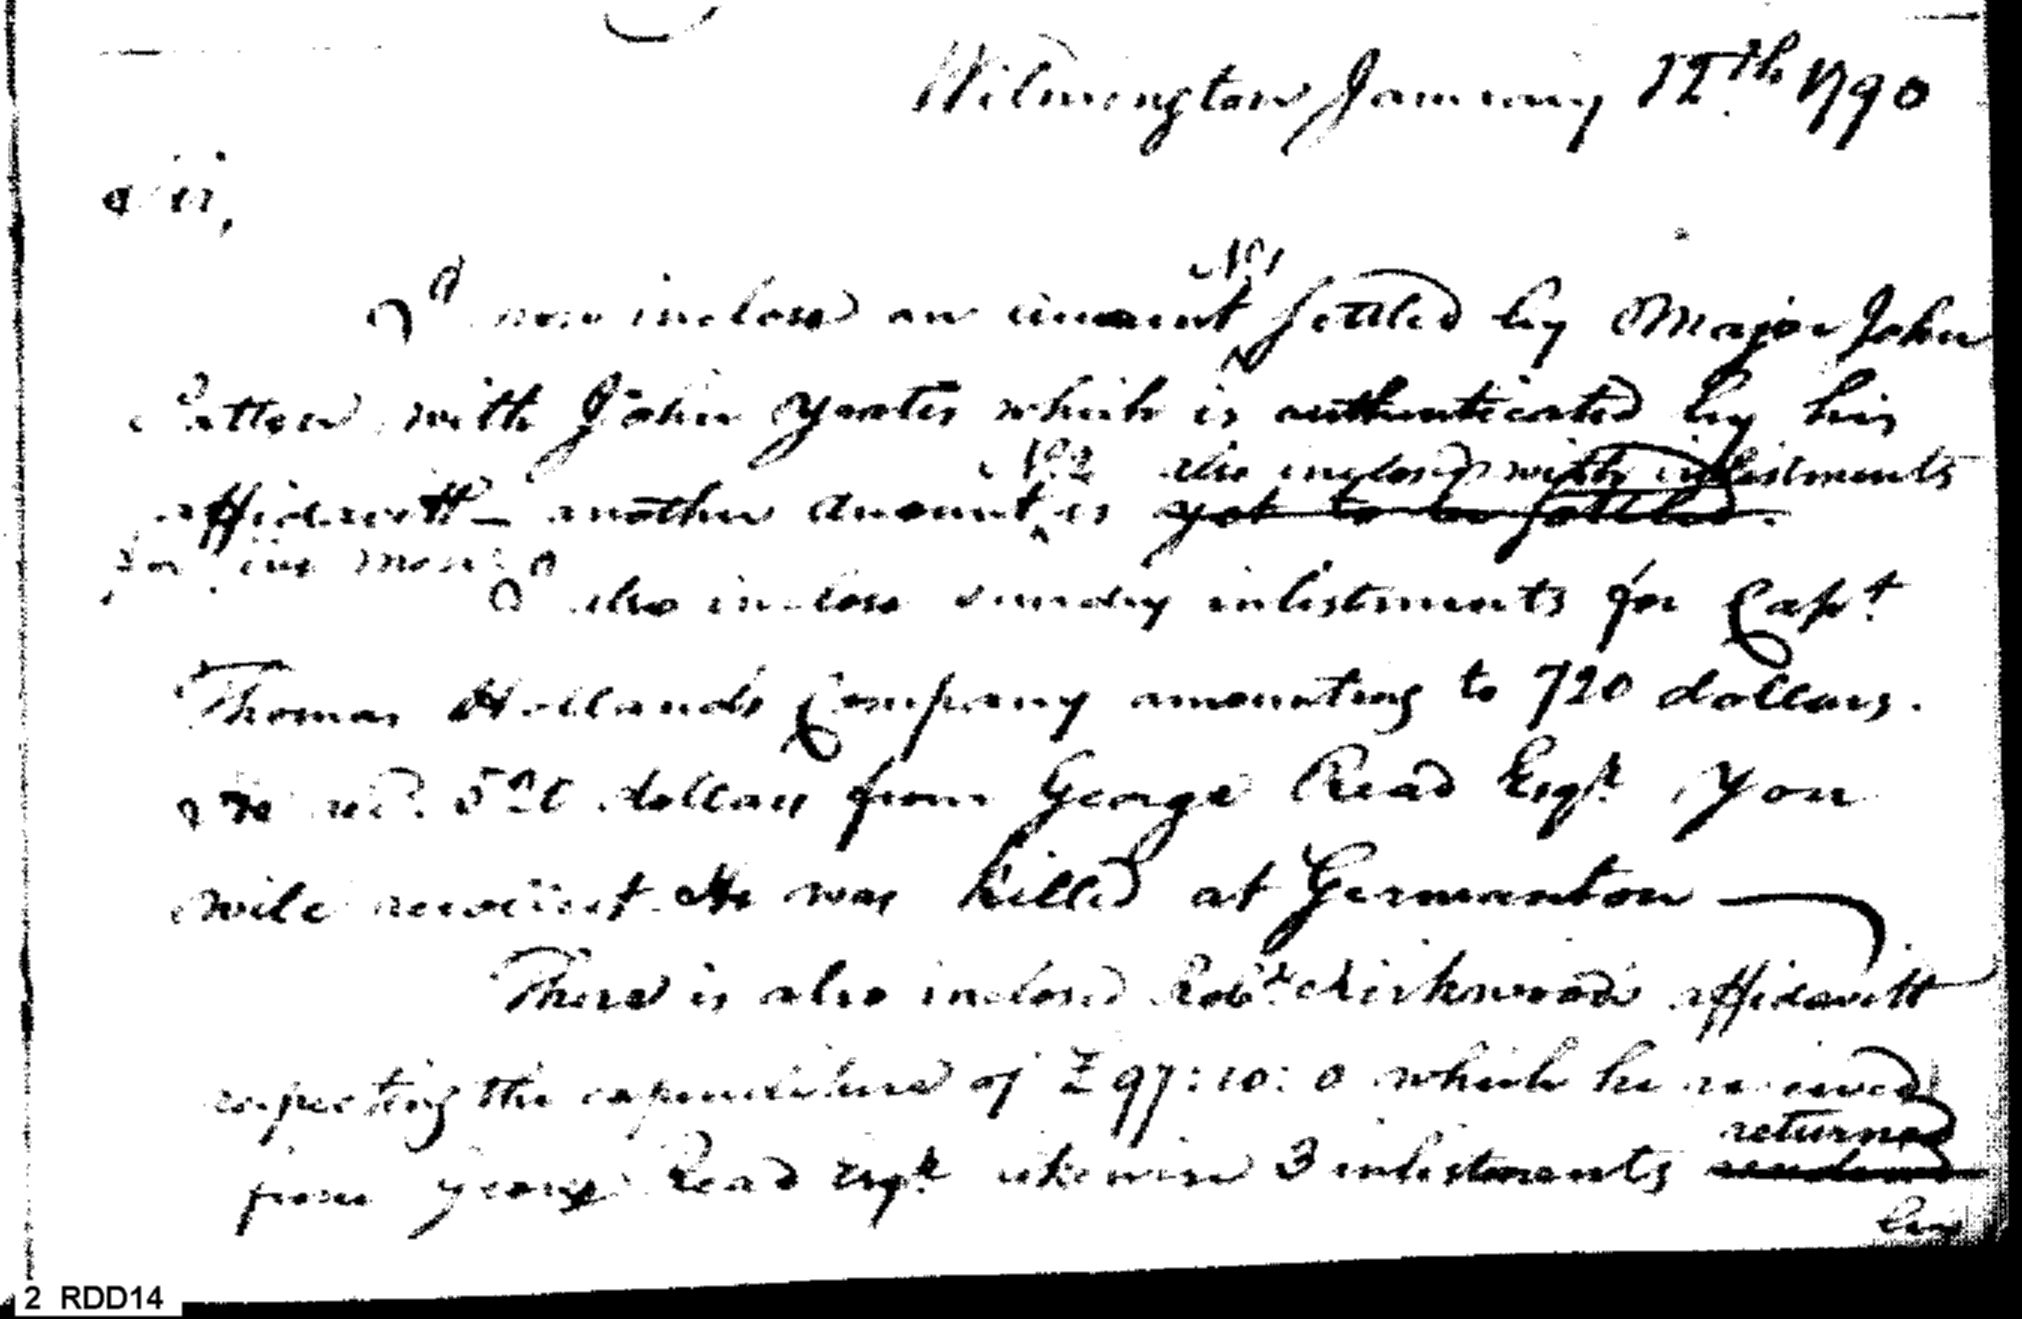 Wilmington January 12.th 1790
Sir,
No. 1
I now inclose an account settled by Major John
Patton with John Yeates which is authenticated by his
No. 2 also inclosed with inlistments
affidavitt — another account is yet to be settled.
for five men
I also inclose sundry inlistments for Capt.
Thomas Hollands Company amounting to 720 dollars.
He rec.d dollars from George Read Esq.r You
will recollect He was killed at Germanton —
There is also inclosed Rob.t Kirkwoods affidavitt
respecting the expenditure of £ 97:10:0 which he received
returned
from George Read Esq.r likewise 3 inlistments
by
2 RDD14